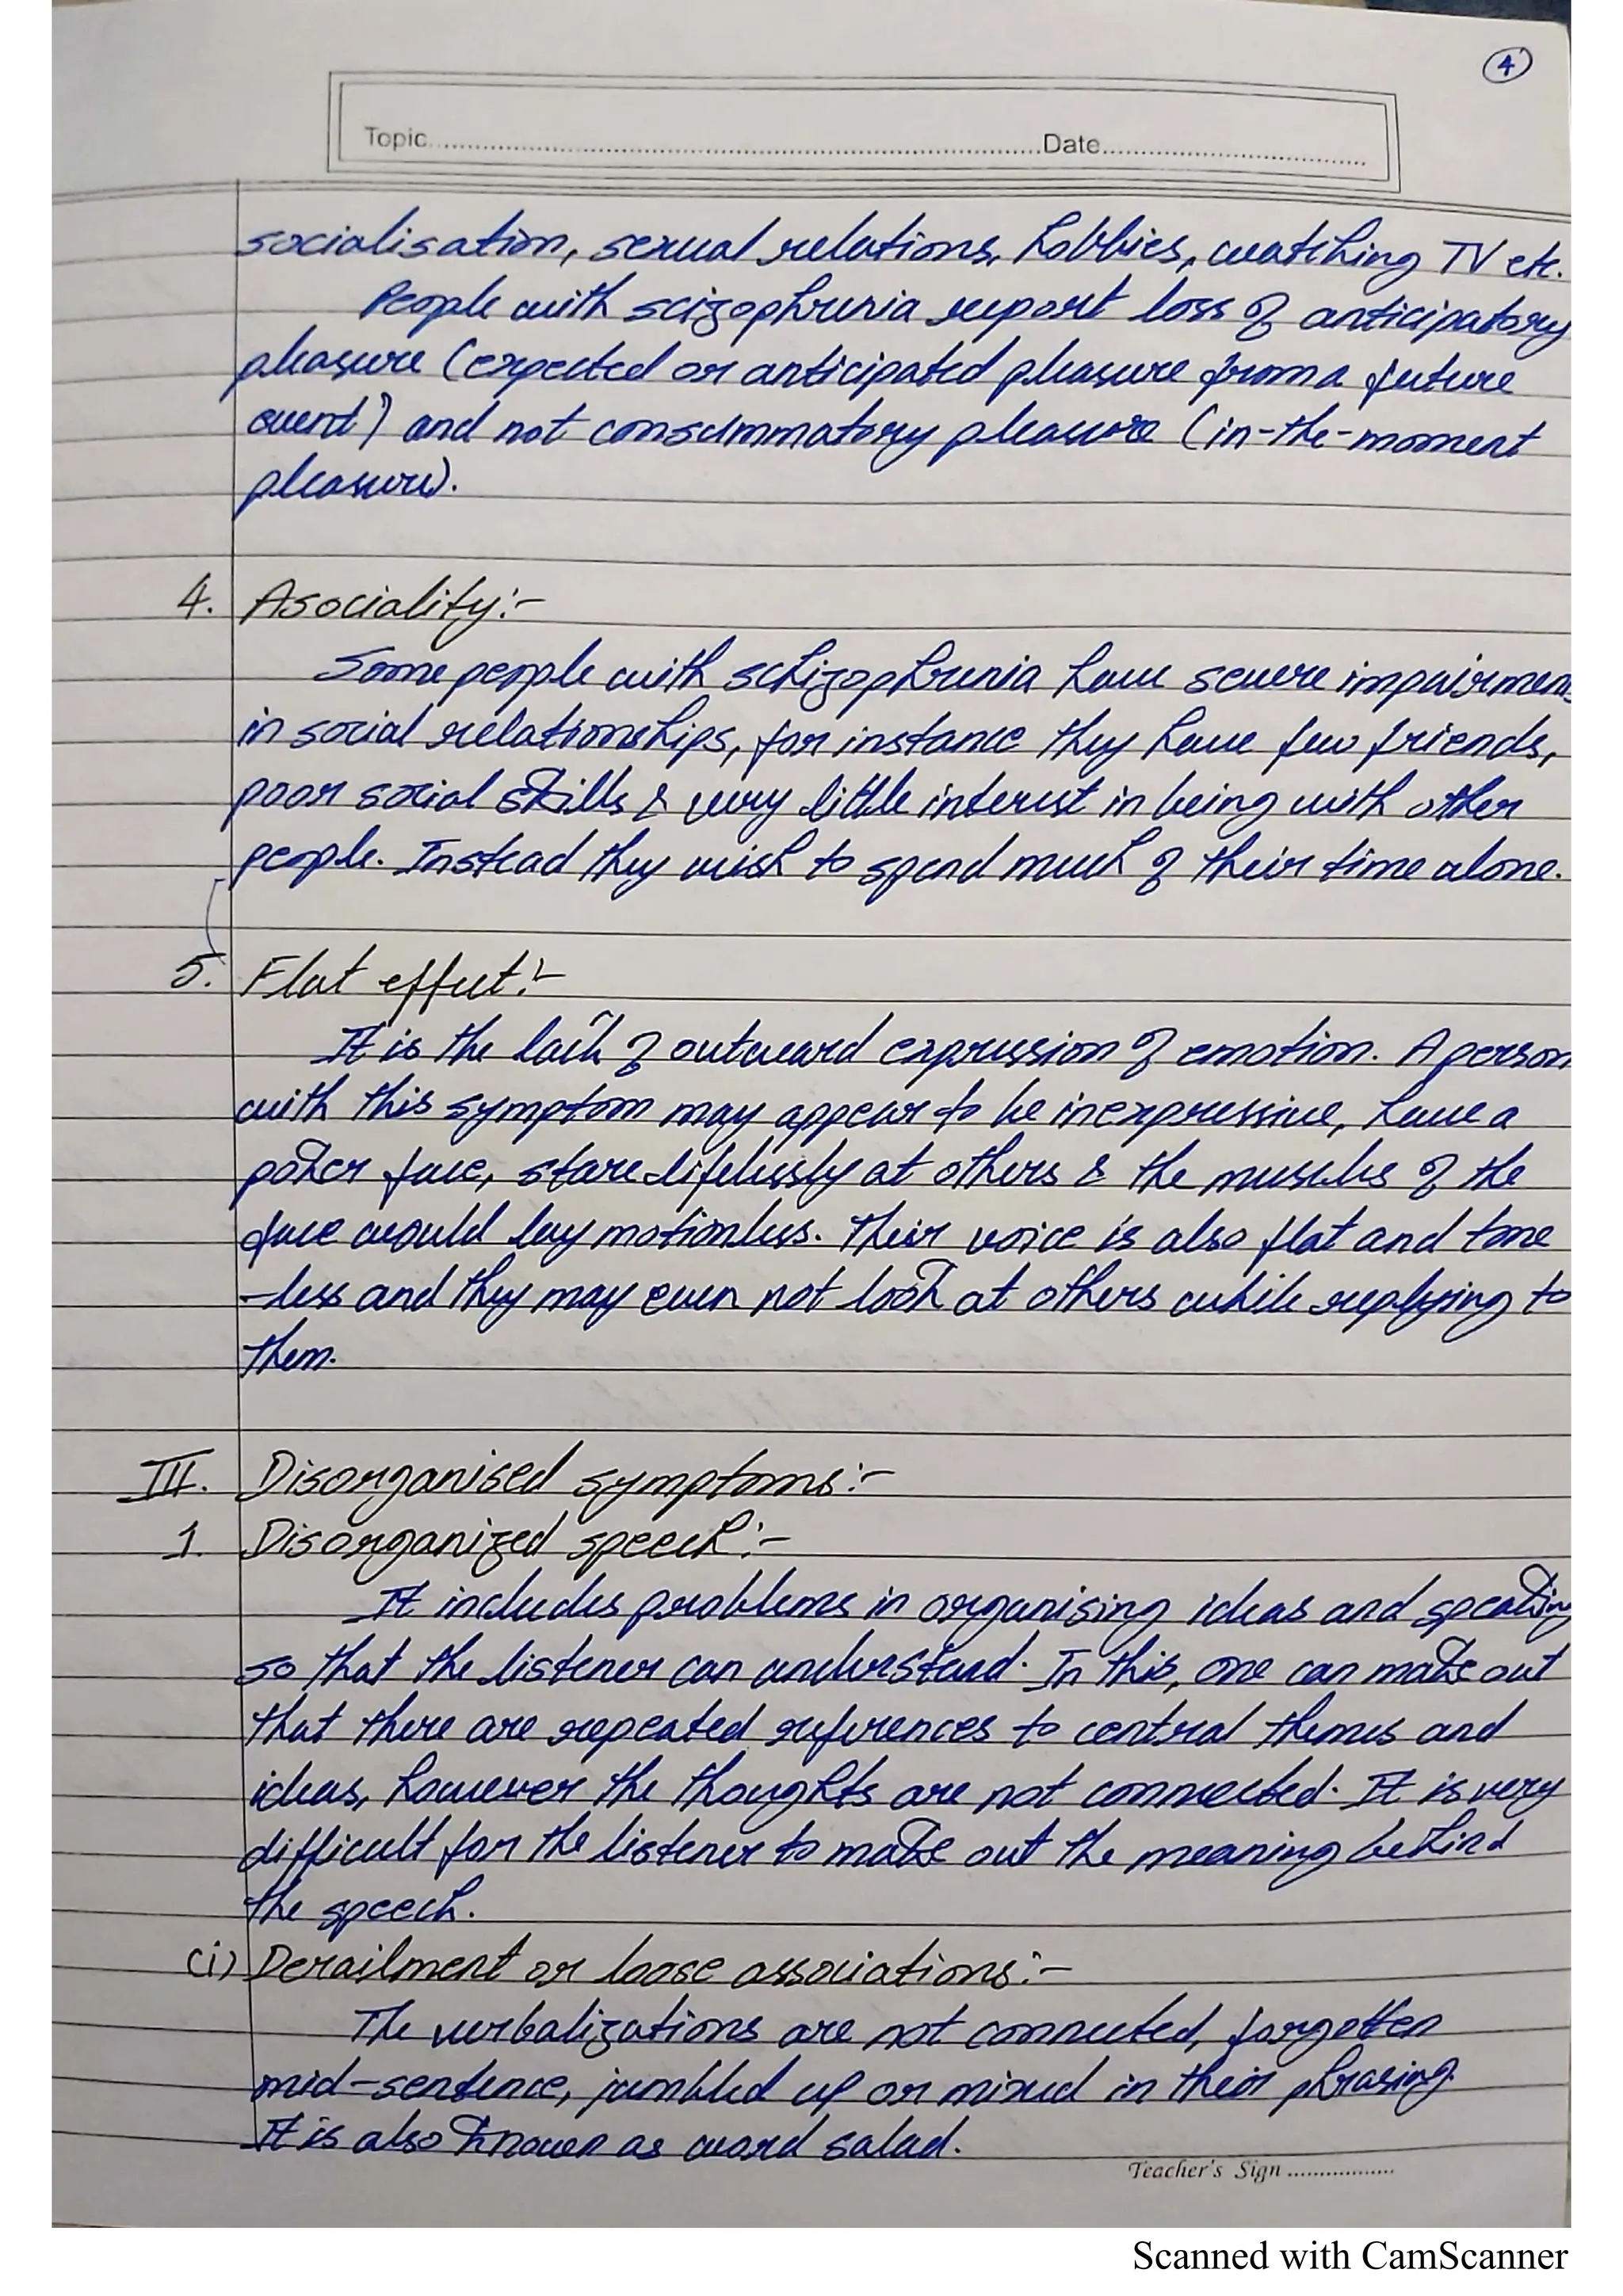 4
Topic..........Date..........
socialisation, sexual relations, hobbies, watching TV etc.
People with scizophrenia report loss of anticipatory
pleasure (expected or anticipated pleasure from a future
event) and not consummatory pleasure (in-the-moment
pleasure).
4. Asociality:-
Some people with schizophrenia have severe impairmen
in social relationships, for instance they have few friends,
poor social skills & very little interest in being with other
people. Instead they wish to spend much of their time alone.
5. Flat effect:-
It is the lack of outward expression of emotion. A person
with this symptom may appear to be inexpressive, have a
poker face, stare lifelessly at others & the muscles of the
face would lay motionless. Their voice is also flat and tone
-less and they may even not look at others while replying to
them.
III. Disorganised symptoms:-
1. Disorganized speech:-
It includes problems in organising ideas and speaking
so that the listener can understand. In this, one can make out
that there are repeated references to central themes and
ideas, however the thoughts are not connected. It is very
difficult for the listener to make out the meaning behind
the speech.
(i) Derailment or loose associations:-
The verbalizations are not connected, forgotten
mid-sentence, jumbled up or mixed in their phrasing.
It is also known as word salad.
Teacher's Sign..........
Scanned with CamScanner